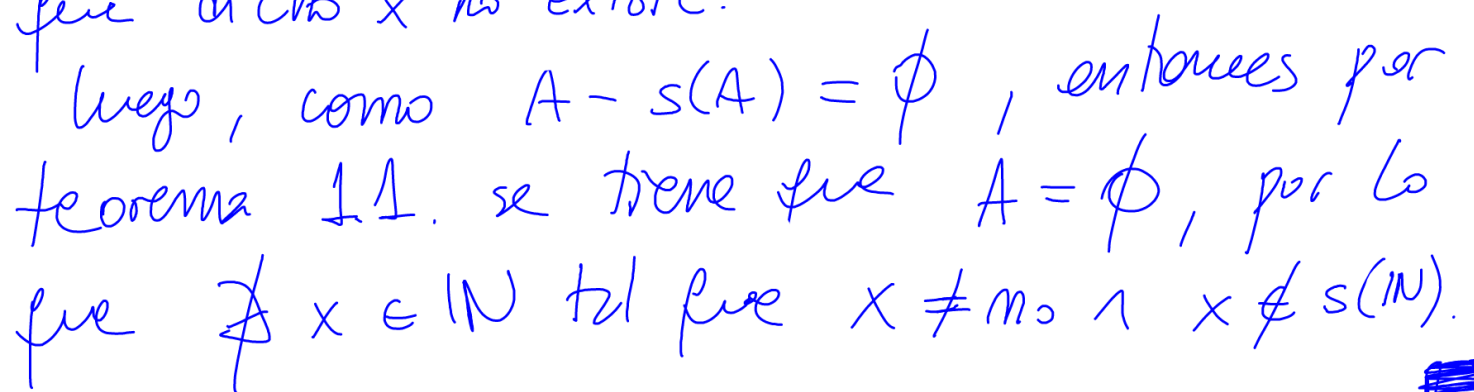 que dicho x no existe.
luego, como A - s(A) = ∅, entonces por
teorema 1.1. se tiene que A = ∅, por lo
que ∄ x ∈ ℕ tal que x ≠ n₀ ∧ x ∉ s(ℕ).